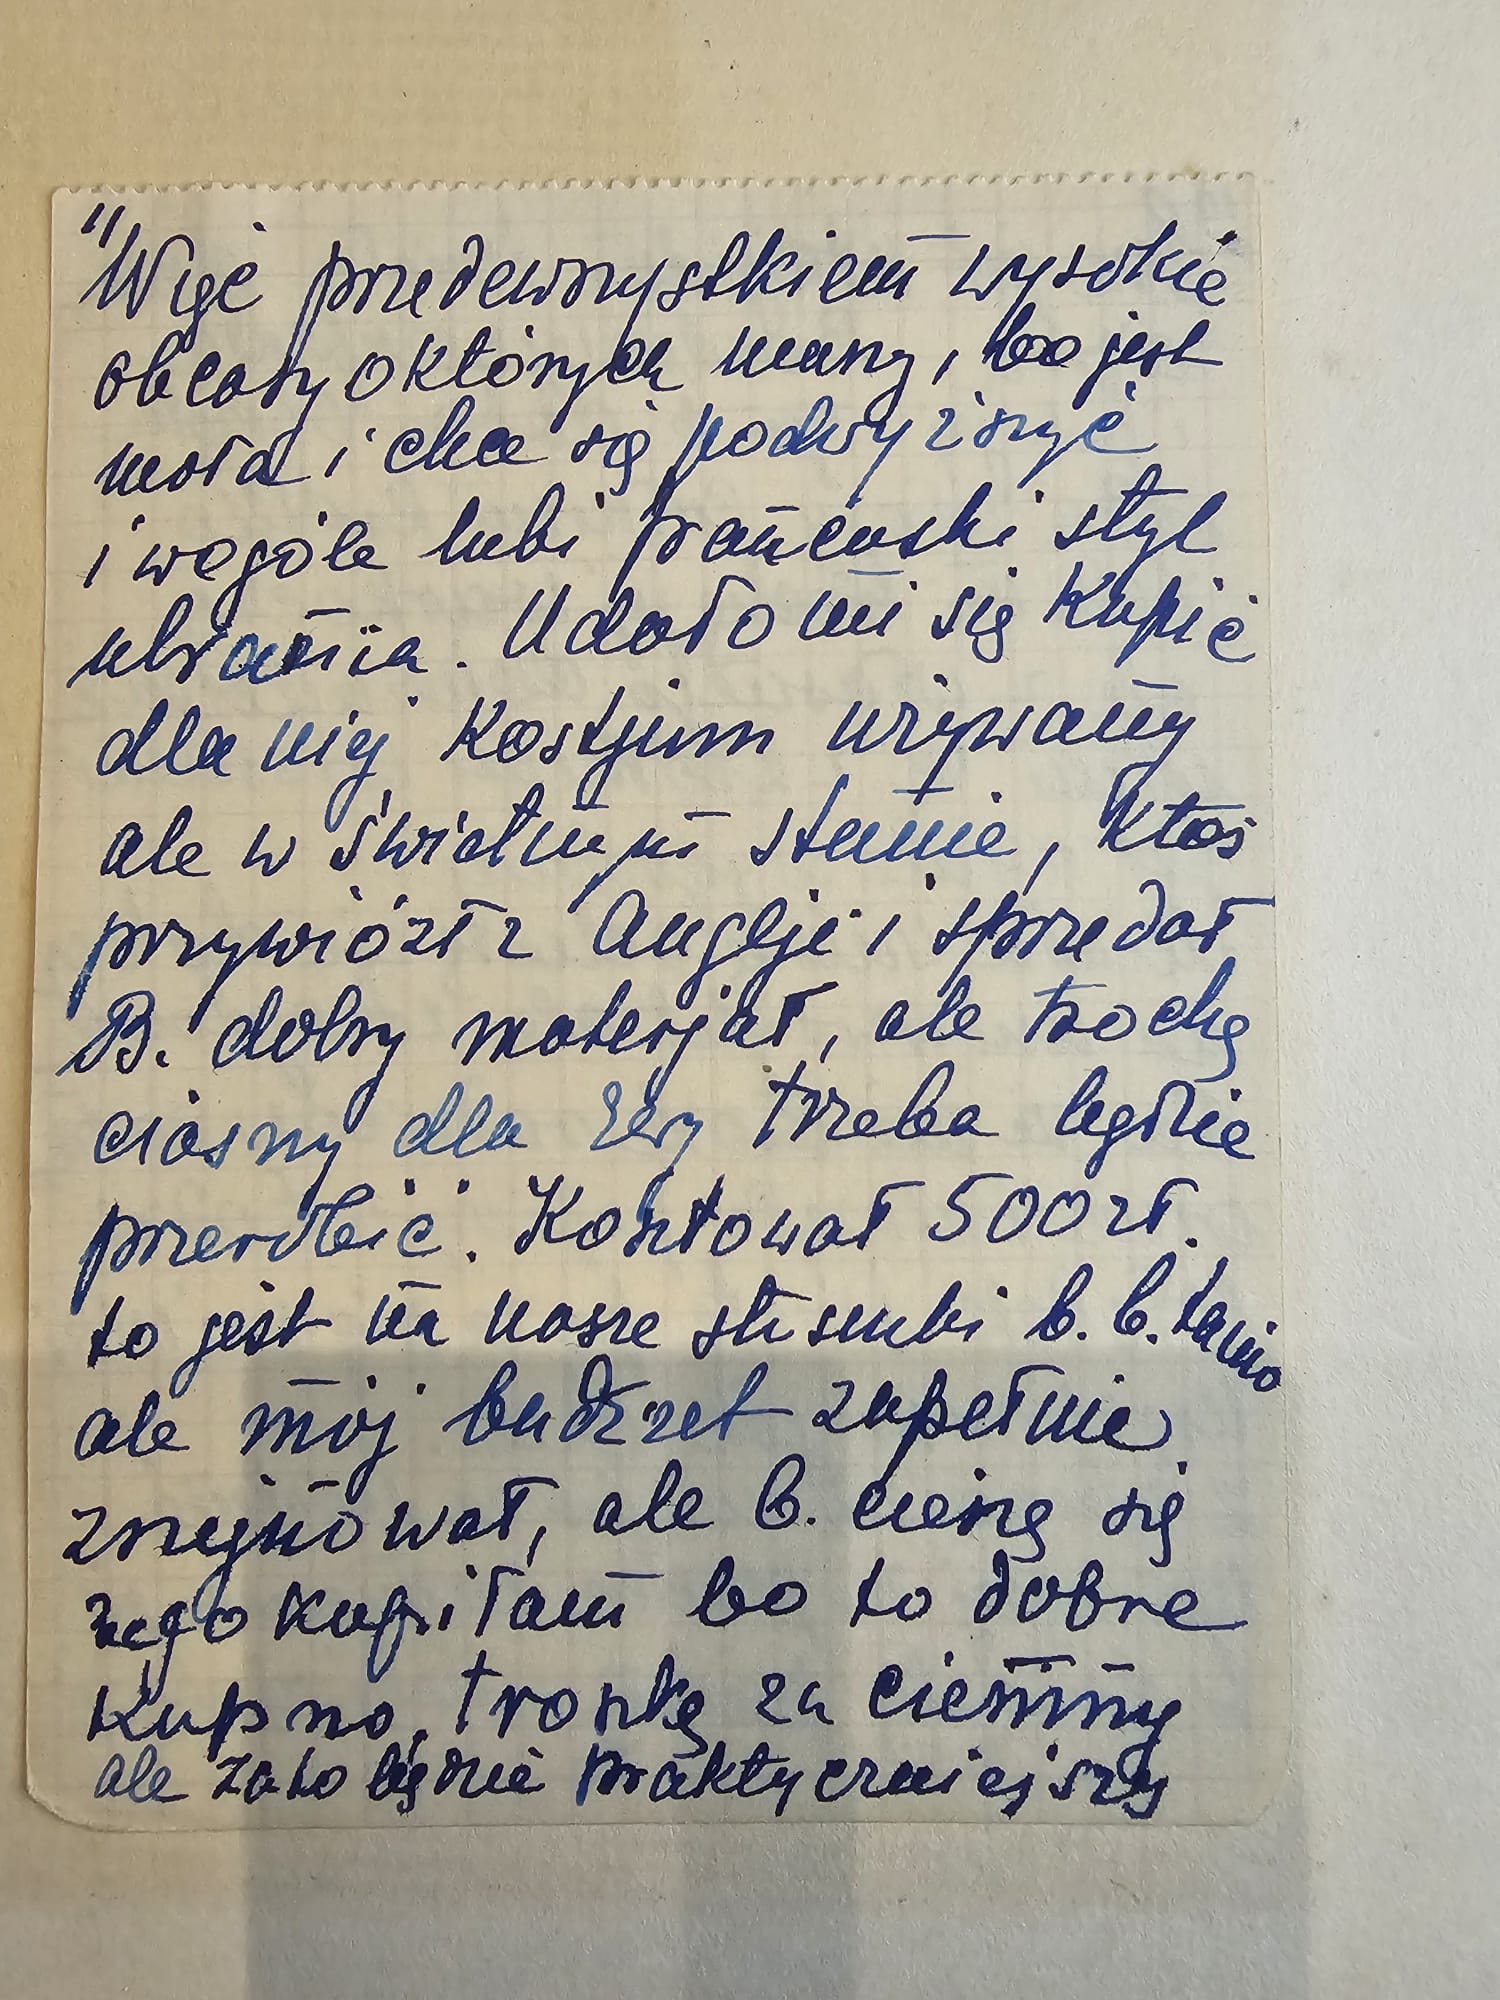 "Więc przedewszystkiem wysokie
obcasy o których marzy, bo jest
mała i chce się podwyższyć
i wogóle lubi francuski styl
ubrania. Udało mi się kupić
dla niej kostjum używany
ale w świetnym stanie, ktoś
przywiózł z Anglji i sprzedał
B. dobry materjał, ale trochę
ciasny dla Ewy trzeba będzie
przerobić. Kosztował 500 zł.
to jest na nasze stosunki b. b. tanio
ale mój budżet zupełnie
zrujnował, ale b. cieszę się
że go kupiłam bo to dobre
kupno, troszkę za ciemny
ale zato będzie praktyczniejszy